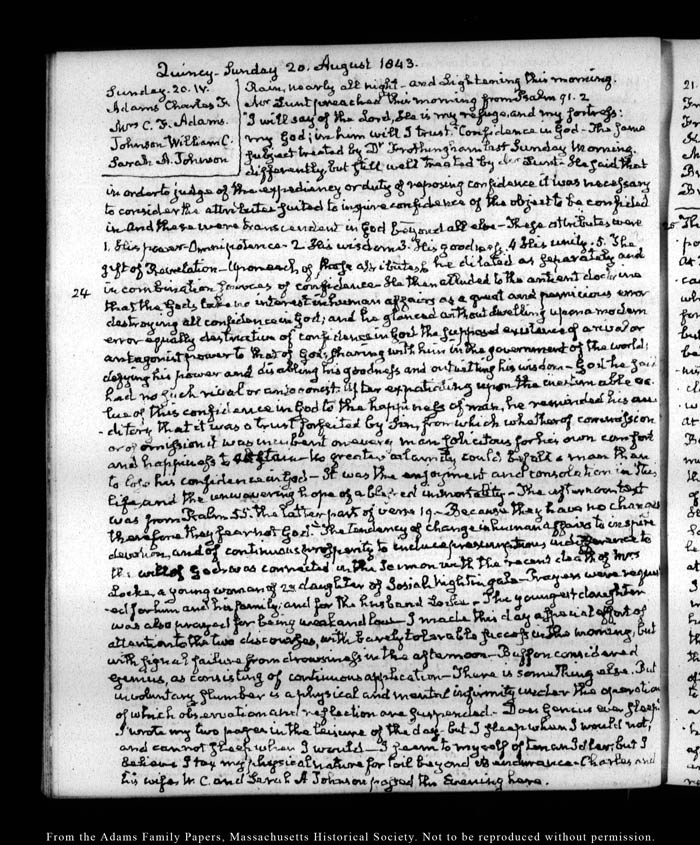 Quincy - Sunday 20. August 1843.
Sunday. 20. IV.
Adams Charles F.
Mrs C. F. Adams.
Johnson William C.
Sarah A. Johnson
Rain, nearly all night - and Lightening this morning.
Mr Lunt preached this morning from Psalm 91. 2
"I will say of the Lord, He is my refuge, and my fortress:
my God; in him will I trust." Confidence in God - The same
subject treated by Dr Frothingham last Sunday morning.
differently, but still well treated by Lunt - He said that
in order to judge of the expediency or duty of reposing confidence it was necessary
to consider the attributes suited to inspire confidence of the object to be confided
in. And these were transcendent in God beyond all else - These attributes were
1. His power - Omnipotence - 2 His wisdom 3. His goodness, 4 His unity - 5. The
gift of Revelation - Upon each of these attributes he dilated as separately and
in combination sources of confidence. He then alluded to the antient doctrine
24
that the Gods take no interest in human affairs as a great and pernicious error
destroying all confidence in God; and he glanced without dwelling upon a modern
error equally destructive of confidence in God the supposed existence of a rival or
antagonist power to that of God, sharing with him in the government of the world;
defying his power and disabling his goodness and outwitting his wisdom - God he said
had no such rival or antagonist. After expatiating upon the inestimable va-
lue of this confidence in God to the happiness of man, he reminded his au
-ditory that it was a trust forfeited by Sin, from which whether of commission
or of omission it was incumbent on every man solicitous for his own comfort
and happiness to abstain - No greater calamity could befall a man than
to lose his confidence in God - It was the enjoyment and consolation in this
life, and the unwavering hope of a blessed immortality - The afternoon text
was from Psalm. 55. the latter part of verse 19. - Because they have no changes
therefore they fear not God." The tendency of change in human affairs to inspire
devotion, and of continuous prosperity to induce presumptuous indifference to
the will of God was connected in the Sermon with the recent death of Mrs
Locke, a young woman of 23 daughter of Josiah Nightingale - Prayers were reques
-ed for him and his family, and for the husband Locke - The youngest daughter
was also prayed for being weak and low - I made this day a special effort of
attention to the two discourses, with barely tolerable success in the morning, but
with signal failure from drowsiness in the afternoon - Buffon considered
genius, as consisting of continuous application - There is something else. But
involuntary slumber is a physical and mental infirmity under the operation
of which observation and reflection are suspended - Does genius ever sleep?
I wrote my two pages in the leisure of the day - but I sleep when I would not,
and cannot sleep when I would - I seem to myself often an Idler; but I
believe I tax my physical nature for toil beyond its endurance - Charles and
his wife, W. C. and Sarah A Johnson passed the Evening here.
From the Adams Family Papers, Massachusetts Historical Society. Not to be reproduced without permission.